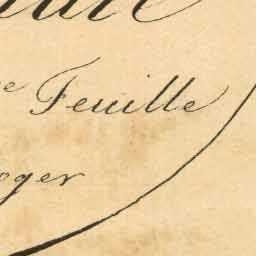 e Feuille
oger